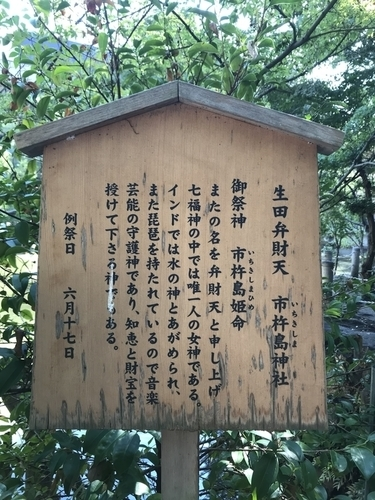 生田弁財天　市杵島神社
いちきしま
御祭神　市杵島姫命
いちきしまひめ
またの名を弁財天と申し上げ
七福神の中では唯一人の女神である。
インドでは水の神とあがめられ、
また琵琶を持たれているので音楽
芸能の守護神であり、知恵と財宝を
授けて下さる神でもある。
例祭日　六月十七日